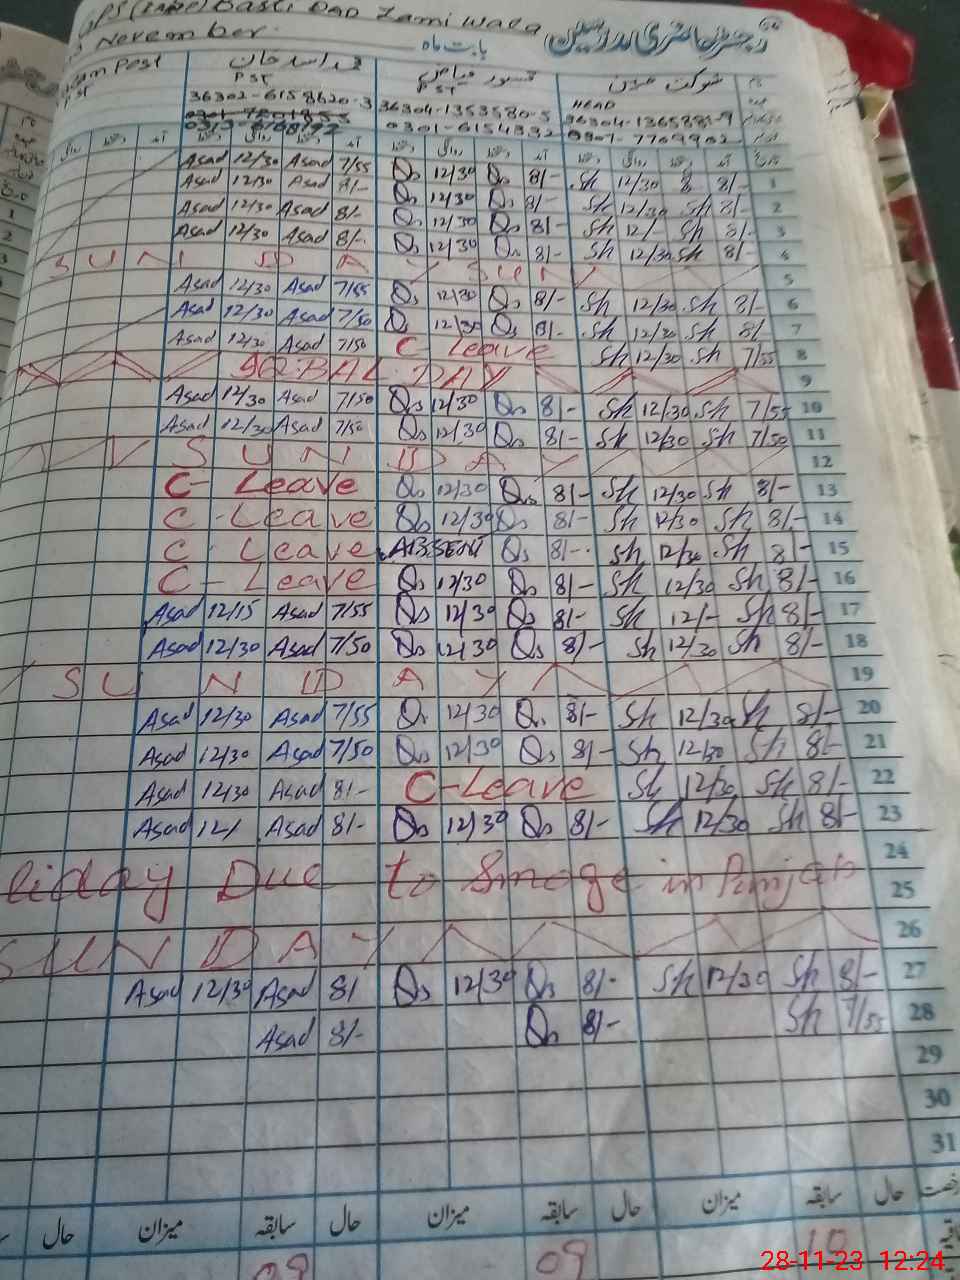 Basti Dad Zami Wala
November. بابت ماہ رجسٹر حاضری مدرسین
Post محمد اسد خان قیصور فیاض شوکت حسین نام
PST PST PST HEAD عہدہ
36302-6158620-3 36304-1353580-5 36304-1365881-9
0301-6154332 0307-7709902
Asad 12/30 Asad 7/55 Qs 12/30 Qs 8/- Sh 12/30 8 8/- 1
Asad 12/30 Asad 8/- Qs 12/30 Qs 8/- Sh 12/30 Sh 8/- 2
Asad 12/30 Asad 8/- Qs 12/30 Qs 8/- Sh 12/- Sh 8/- 3
Asad 12/30 Asad 8/- Qs 12/30 Qs 8/- Sh 12/30 Sh 8/- 4
SUNDAY SUN 5
Asad 12/30 Asad 7/55 Qs 12/30 Qs 8/- Sh 12/30 Sh 8/- 6
Asad 12/30 Asad 7/50 Qs 12/30 Qs 8/- Sh 12/30 Sh 8/ 7
Asad 12/30 Asad 7/50 C Leave Sh 12/30 Sh 7/55 8
IQBAL DAY 9
Asad 12/30 Asad 7/50 Qs 12/30 Qs 8/- Sh 12/30 Sh 7/55 10
Asad 12/30 Asad 7/50 Qs 12/30 Qs 8/- Sh 12/30 Sh 7/50 11
SUNDAY 12
C- Leave Qs 12/30 Qs 8/- Sh 12/30 Sh 8/- 13
C - Leave Qs 12/30 Qs 8/- Sh 12/30 Sh 8/- 14
C - Leave ABSENT Qs 8/- Sh 12/30 Sh 8/- 15
C - Leave Qs 12/30 Qs 8/- Sh 12/30 Sh 8/- 16
Asad 12/15 Asad 7/55 Qs 12/30 Qs 8/- Sh 12/- Sh 8/- 17
Asad 12/30 Asad 7/50 Qs 12/30 Qs 8/- Sh 12/30 Sh 8/- 18
SUNDAY 19
Asad 12/30 Asad 7/55 Qs 12/30 Qs 8/- Sh 12/30 Sh 8/- 20
Asad 12/30 Asad 7/50 Qs 12/30 Qs 8/- Sh 12/30 Sh 8/- 21
Asad 12/30 Asad 8/- C-Leave Sh 12/30 Sh 8/- 22
Asad 12/ Asad 8/- Qs 12/30 Qs 8/- Sh 12/30 Sh 8/- 23
24
liday Due to Smoge in Punjab 25
SUNDAY 26
Asad 12/30 Asad 8/ Qs 12/30 Qs 8/- Sh 12/30 Sh 8/- 27
Asad 8/- Qs 8/- Sh 7/55 28
29
30
31
حال میزان سابقہ حال میزان سابقہ حال میزان سابقہ حال رخصت
09 09 10
28-11-23 12:24